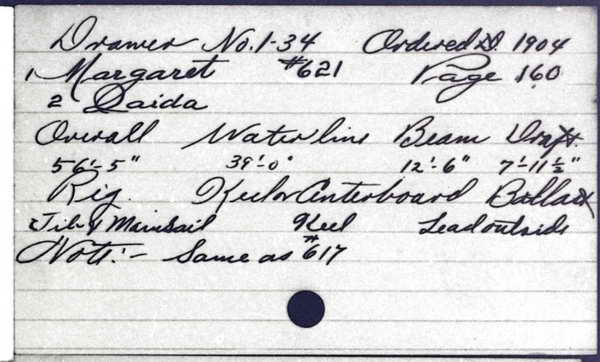 Drawer No. 1-34 Ordered D. 1904
1 Margaret #621 Page 160
2 Daida
Overall Waterline Beam Draft.
56'-5" 39'-0" 12'-6" 7'-11½"
Rig. Keel or Centerboard Ballast
Jib & Mainsail Keel Lead outside
Note:- Same as #617